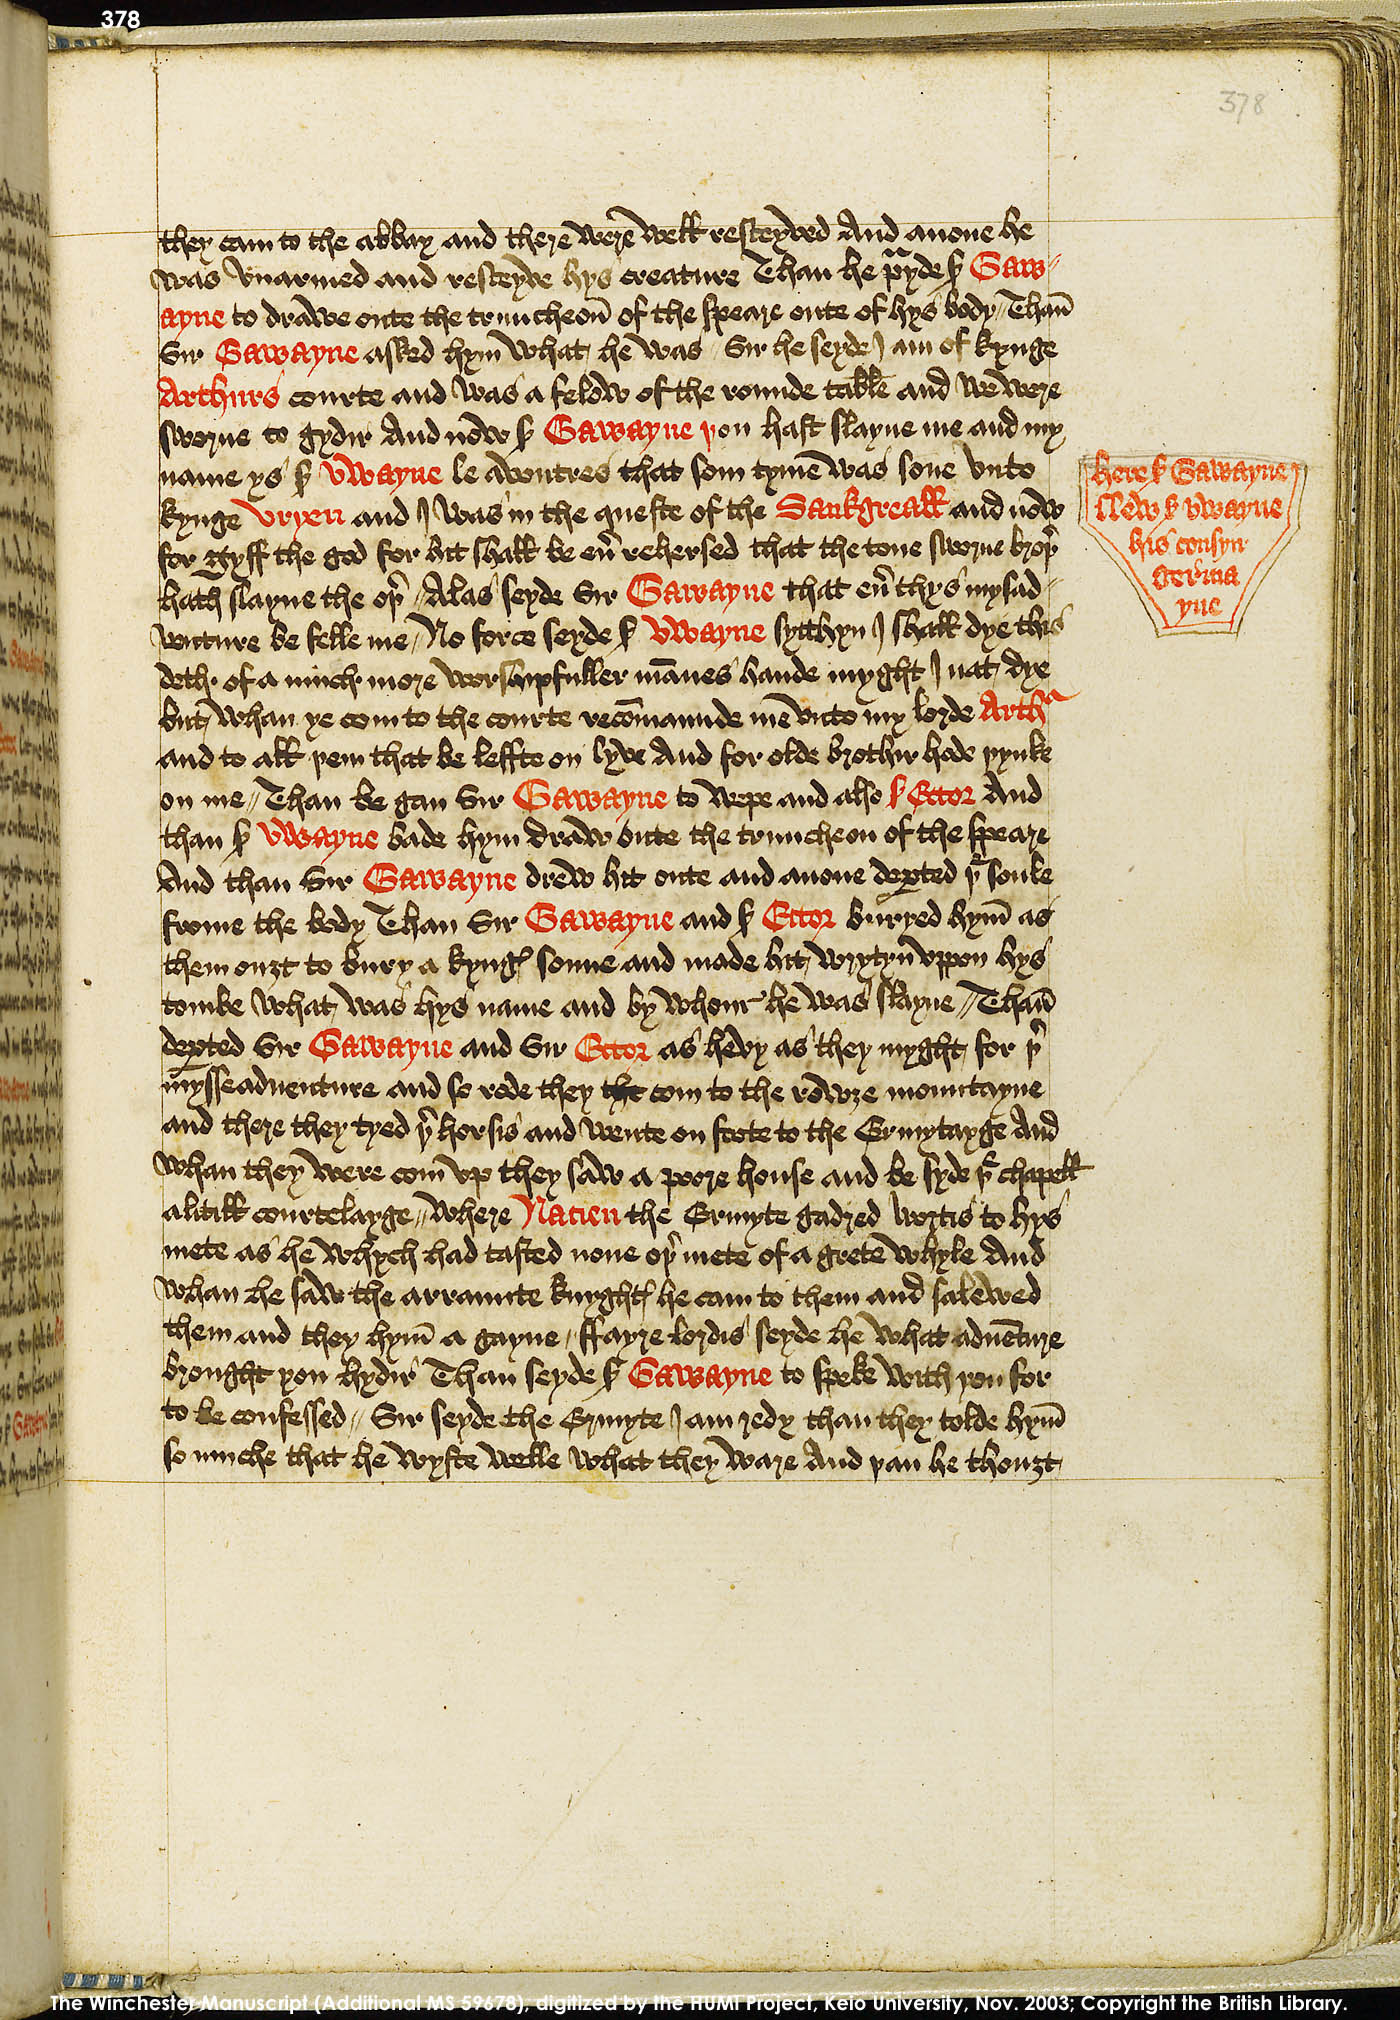 378
378
they cam to the abbay and there were well resceyved And anone he
was vnarmed and resceyve hys creature Than he pͣyde ẜ Gaw-
ayne to drawe oute the truncheoū of the speare oute of hys body // Thañ
Sir Gawayne asked hym what he was // Sir he seyde I am of kynge
Arthurs courte and was a felow of the rounde table and we were
sworne to gydir And now ẜ Gawayne þou hast slayne me and my
name ys ẜ vwayne le awntres that som tyme was sone vnto
kynge vryen and I was in the queste of the Sankgreall and now
for gyff the god for hit shall be eũ rehersed that the tone sworne broþ̉
hath slayne the oþ̉ // Alas seyde Sir Gawayne that eũ thys mysad-
venture be felle me // No force seyde ẜ vwayne sytthyn I shall dye this
deth of a much more worshipfuller mānes hande myght I nat dye
but whan ye com to the courte recōmaunde me vnto my lorde Arthͬ
and to all þem that be leffte on lyve And for olde brothir hode þynke
on me // Than be gan Sir Gawayne to wepe and also ẜ Ector And
than ẜ vwayne bade hym draw oute the truncheon of the speare
And than Sir Gawayne drew hit oute and anone deꝑted þͤ soule
frome the body Than Sir Gawayne and ẜ Ector buryed hym̄ as
them ouȝt to bury a kyngꝭ sonne and made hit wrytyn̄ vppon hys
tombe what was hys name and by whom he was slayne // Thañ
deꝑted Sir Gawayne and Sir Ector as hevy as they myght for þ̉
mysseadventure and so rede they tht com to the rowȝe mountayne
and there they tyed þ̉ horsis and wente on foote to the Ermytayge And
whan they were com vp they saw a poore house and be syde þͤ chapell
a litill courtelayge // where Nacien the Ermyte gadred wortis to hys
mete as he whych had tasted none oþ̉ mete of a grete whyle And
whan he saw the arraunte knyghtꝭ he cam to them and salewed
them and they hym̄ a gayne // ffayre lordis seyde he what advēture
brought you hydir Than seyde ẜ Gawayne to speke with you for
to be confessed // Sir seyde the Ermyte I am redy than they tolde hym̄
so muche that he wyste welle what they ware And þan he thouȝt
here ẜ Gawayne
slew ẜ vwayne
his cousyn
germa
yne
The Winchester Manuscript (Additional MS 59678), digitized by the HUMI Project, Keio University, Nov. 2003; Copyright the British Library.